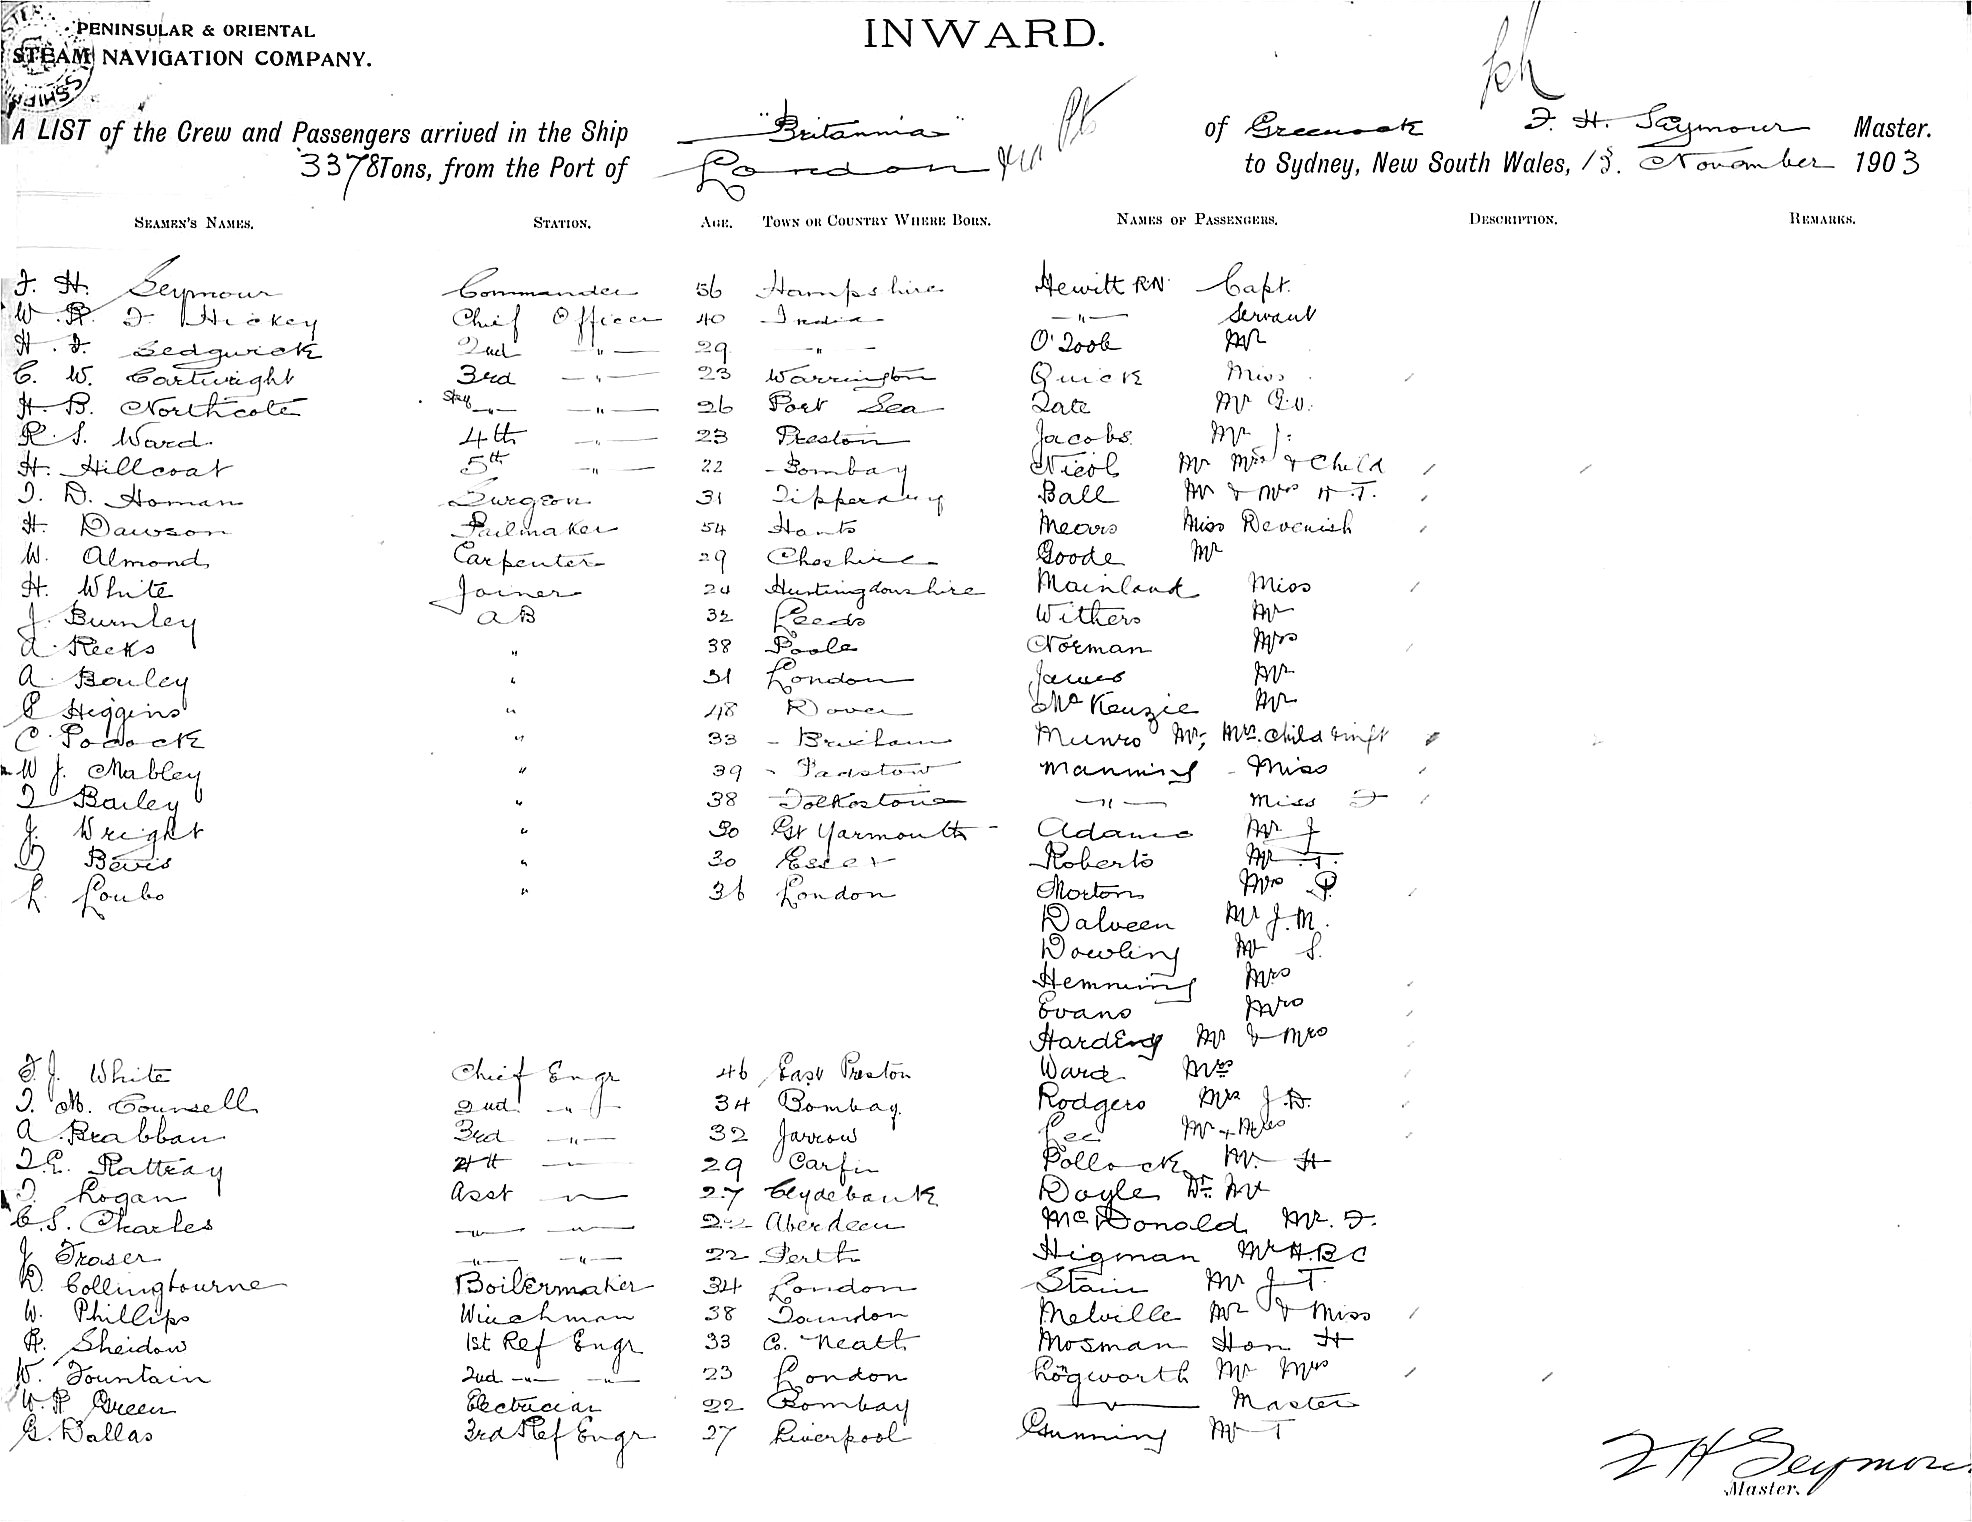 PENINSULAR & ORIENTAL
STEAM NAVIGATION COMPANY.
INWARD.
A LIST of the Crew and Passengers arrived in the Ship "Britannia" of Greenock F. H. Seymour Master.
3378 Tons, from the Port of London to Sydney, New South Wales, November 1903
SEAMEN'S NAMES. STATION. AGE. TOWN OR COUNTRY WHERE BORN. NAMES OF PASSENGERS. DESCRIPTION. REMARKS.
F. H. Seymour Commander 56 Hampshire Hewitt RN Capt.
W. R. F Hickey Chief Officer 40 India —"— Servant
H. F. Sedgwick 2nd —"— 29 —"— O'Toole Mr
C. W. Cartwright 3rd —"— 23 Warrington Quick Miss
H. B. Northcote —"— —"— 26 Port Sea Tate Mr Go.
R. S. Ward 4th —"— 23 Preston Jacobs Mr J.
H. Hillcoat 5th —"— 22 Bombay Nicol Mr Mrs & Child
T. D. Homan Surgeon 31 Tipperary Ball Mr & Mrs H. T.
H. Dawson Sailmaker 54 Hants Mears Miss Devenish
W. Almond Carpenter 29 Cheshire Goode Mr
H. White Joiner 24 Huntingdonshire Mainland Miss
J. Burnley AB 32 Leeds Withers Mr
A. Reeks " 38 Poole Norman Mrs
A. Bouley " 31 London James Mr
E Higgins " 48 Dover McKenzie Mr
C. Pocock " 33 Brixham Munro Mr, Mrs. Child & inft
W J. Mabley " 39 Padstow Manning Miss
T Bailey " 38 Folkestone —"— Miss F
J. Wright " 30 Gt Yarmouth Adams Mr J
Bevis " 30 Essex Roberts Mr T.
L. Loubo " 36 London Morton Mrs P.
Dalveen Mr J. M.
Dowling Mr S.
Hemming Mrs
Evans Mrs
Harding Mr & Mrs
F. J. White Chief Engr 46 East Preston Ward Mrs
T. M. Counsell 2nd —"— 34 Bombay Rodgers Mrs J. D.
A Brabban 3rd —"— 32 Jarrow Lee Mr +
T. E. Rattray 4th —"— 29 Carfin Pollock Mr. H
T. Logan Asst —"— 27 Clydebank Doyle Dr.
C. S. Charles —"— —"— 22 Aberdeen McDonald Mr. F.
J Fraser —"— —"— 22 Perth Higman Mr ABC
D. Collingbourne Boilermaker 34 London Stain Mr J T.
W. Phillips Winchman 38 Melville Mr & Miss
R. Sheidow 1st Ref Engr 33 Co. Meath Mosman Hon H
W. Fountain 2nd —"— —"— 23 London Longworth Mr Mrs
W. P Green Electrician 22 Bombay —"— Master
G. Dallas 3rd Ref Engr 27 Liverpool Gunning Mr T
F H Seymour
Master.